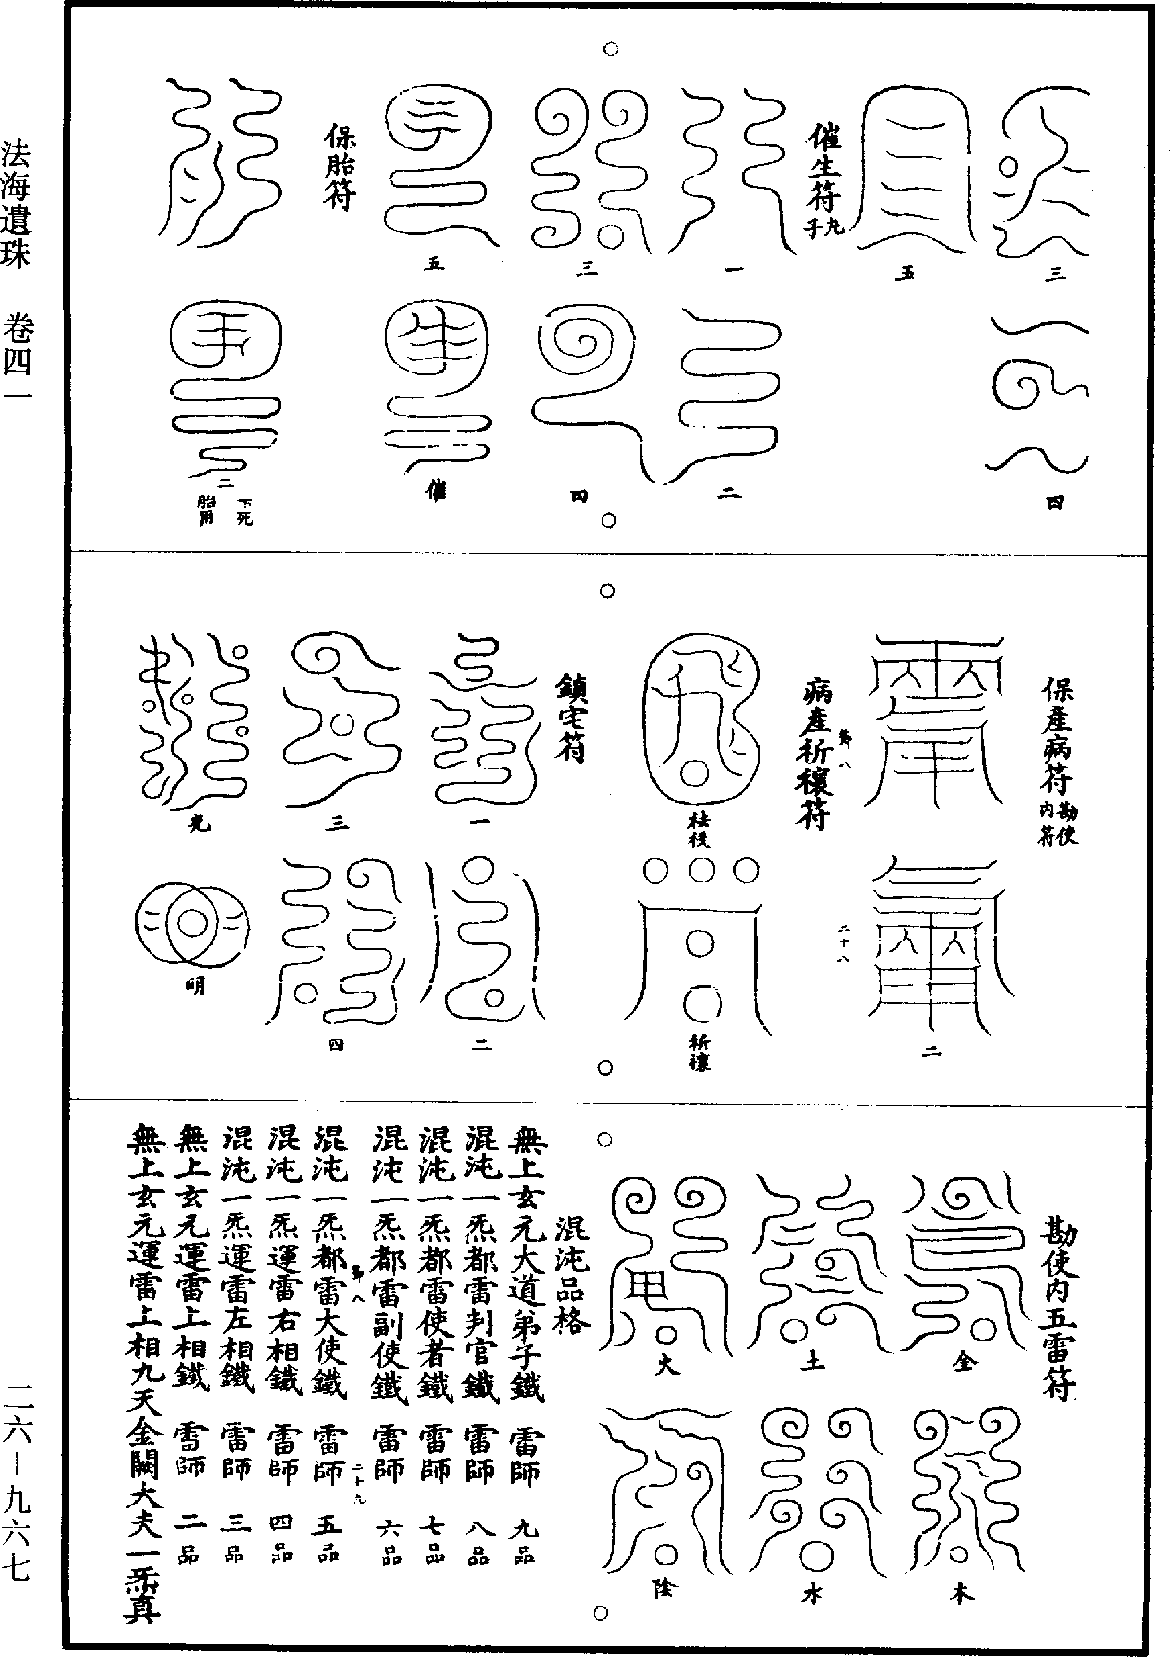 三
四
五
催生符九子
一
二
三
四
五
催
保胎符
二
下死胎用
保產病符勘使內符
二
鄧八
二十八
病產祈禳符
祈禳
鎮宅符
一
二
三
四
光
明
勘使內五雷符
金
木
土
水
火
陰
混沌品格
無上玄元大道弟子鐵 雷師 九品
混沌一炁都雷判官鐵 雷師 八品
混沌一炁都雷使者鐵 雷師 七品
混沌一炁都雷副使鐵 雷師 六品
二十九
混沌一炁都雷大使鐵 雷師 五品
混沌一炁運雷右相鐵 雷師 四品
混沌一炁運雷左相鐵 雷師 三品
無上玄元運雷上相鐵 雷師 二品
無上玄元運雷上相九天金闕大夫一炁真
法海遺珠 卷四一
二六－九六七